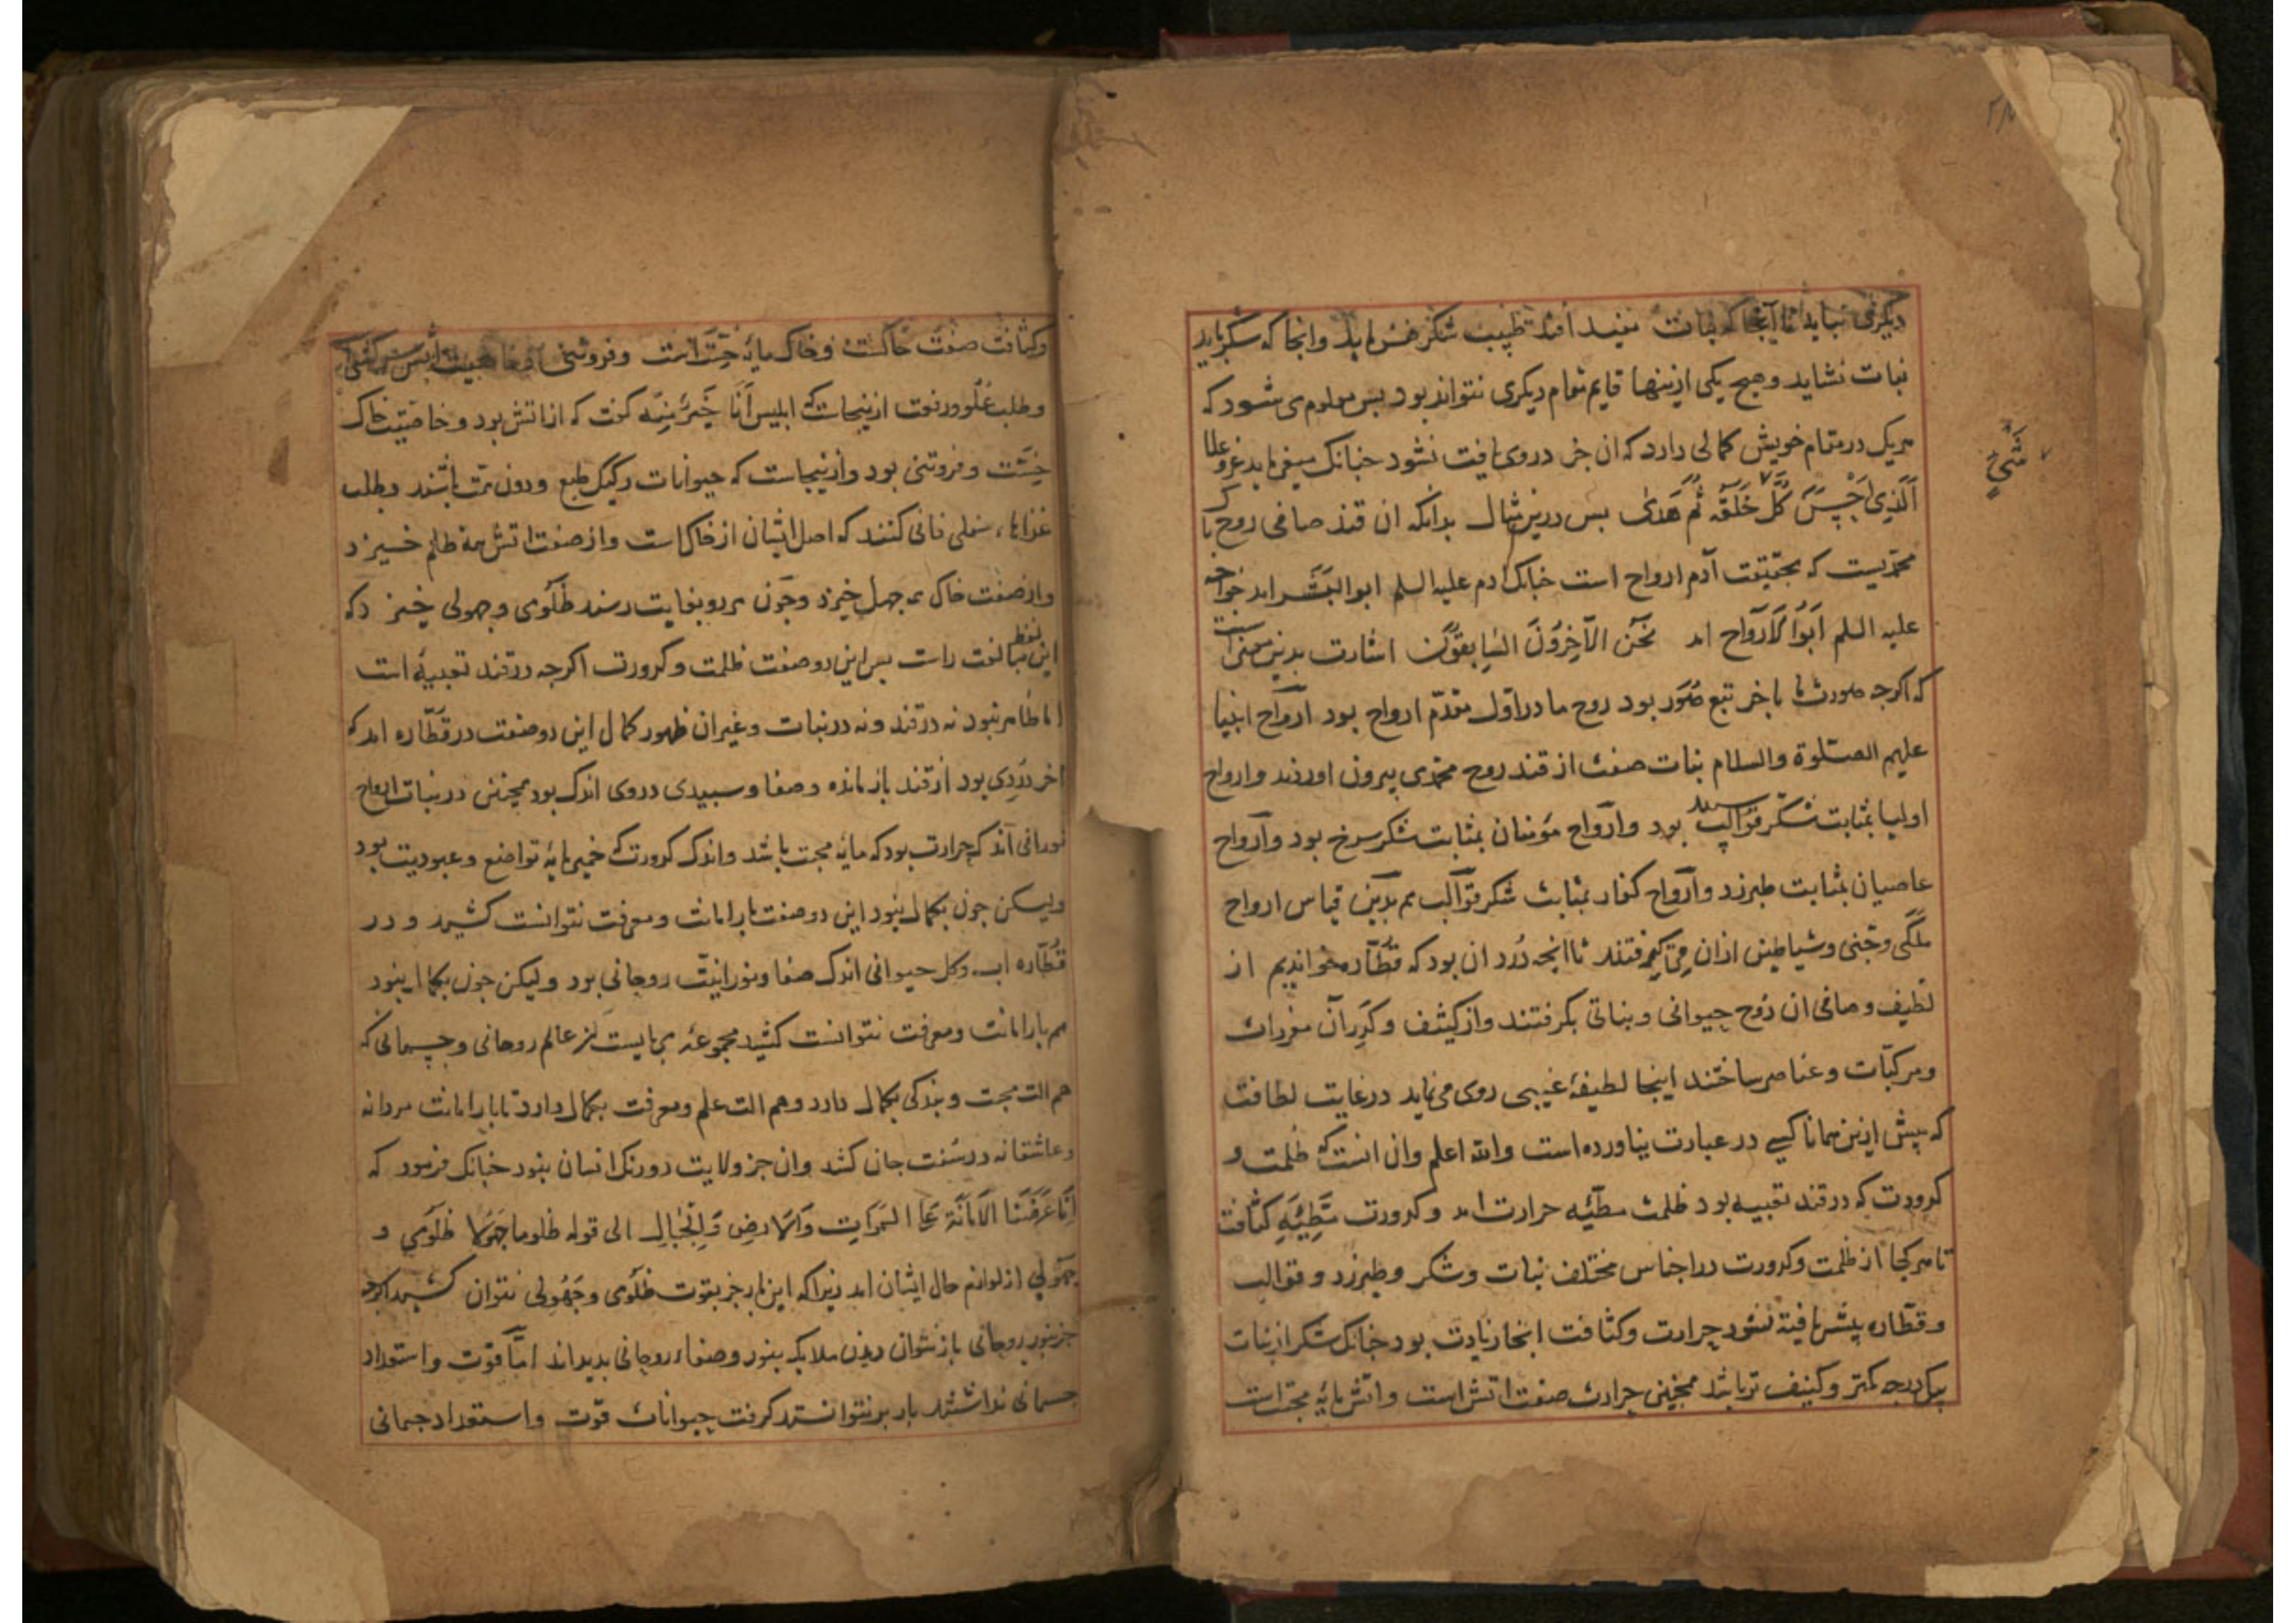 دیکری نباید تا آنجا که نبات مفید افتد طبیب شکر نفرماید وانجا که شکر باید
نبات نشاید و هیچ یکی ازینها قایم مقام دیکری نتواند بود بس معلوم می شود که
هریک در مقام خویش کمالی دارد که ان در دیکری یافت نشود جنانک میفرماید عز و علا
اَلَّذِی اَحْسَنَ کُلَّ خَلَقَهُ ثُمَّ هَدیٰ بس درین مثال بدانکه ان قند صافی روح باک
شَیْءٍ
محمدیست که بحقیقت آدم ارواح است جنانک ادم علیه السلم ابو البشر امد خواجه
علیه السلم اَبُو الاَرواح امد نَحْنُ الآخِرُونَ السَّابِقُونَ اشارت بدین معنی است
که اکرجه صورت ما باخر تبع صُوَر بود روح ما در اوّل مقدّم ارواح بود ارواح انبیا
علیهم الصّلوة والسلام نبات صفت از قند روح محمدی بیرون اوردند و ارواح
اولیا بمثابت شکر سبید بود و ارواح مؤمنان بمثابت شکر سرخ بود و ارواح
عاصیان بمثابت طبرزد و ارواح کفار بمثابت شکر قوالب هم بدین قیاس ارواح
ملکی و جنی و شیاطین ازان می کرفتند تا انجه دُرد ان بود که قطّاره خواندیم از
لطیف و صافی ان رُوح حیوانی و نباتی بکرفتند و از کثیف و کَدِر آن مفردات
ومرکبّات و عناصر ساختند اینجا لطیفۀ غیبی روی می نماید در غایت لطافت
که بیش ازین همانا کسی در عبارت نیاورده است والله اعلم وان انست که ظُلمت و
کدورت که در قند تعبیه بود ظلمت مطیّه حرارت امد و کدورت مَطِیَّهِ کثافت
تا هر کجا از ظلمت و کدورت در اجناس مختلف نبات و شکر و طبرزد و قوالب
و قطّاره بیشتر یافته شود حرارت و کثافت انجا زیادت بود جنانک شکر از نبات
بیک درجه کمتر و کثیف تر باشد همجنین حرارت صفت اتش است و اتش مایۀ محبّت است
وکثافت صفت خاکست و خاک مایۀ خسّت است و فروتنی
وطلب عُلُوّ و رفعت ازینجاست که ابلیس اَنَا خَیرٌ مِنهُ کفت که از اتش بود و خاصیّت خاک
خسّت و فروتنی بود و ازینجاست که حیوانات رکیک طبع و دون همت باشند و طلب
غذاهاء سفلی فانی کنند که اصل ایشان از خاک است و از صفت اتش همه ظلم خیزد
و از صفت خاک همه جهل خیزد و جون هر دو بغایت رسند ظلَومی و جهولی خیزد که
این لفظ مبالغت راست بس این دو صفت ظلمت و کدورت اکرجه در قند تعبیه است
اما ظاهر نبود نه در قند و نه در نبات و غیران ظهور کمال این دو صفت در قطّاره امد که
اخر دُردِی بود از قند باز مانده و صفا و سبیدی در وی اندک بود همجنین در نبات ارواح
نورانی اندک حرارت بود که مایۀ محبت باشد و اندک کدورت که خمیرمایۀ تواضع و عبودیت بود
ولیکن جون بکمال نبود این دو صفت بار امانت و معرفت نتوانست کشید و در
قطّاره اب و کل حیوانی اندک صفا و نورانیّت روحانی بود و لیکن جون بکمال نبود
هم بار امانت و معرفت نتوانست کشید مجموعۀ می بایست از عالم روحانی و جسمانی که
هم الت محبت و بندکی بکمال دارد و هم الت علم و معرفت بکمال دارد تا بار امانت مردانه
و عاشقانه در سُفت جان کشد وان جز ولایت دورنک انسان نبود جنانک فرمود که
اِنّا عَرَضْنَا الاَمَانَةَ عَلَی السَّمَوَاتِ وَالاَرضِ وَالجِبَالِ الی قوله ظلوما جَهُولا ظلُومی و
جهولی از لوازم حال ایشان امد زیرا که این بار جز بقوت ظلُومی و جَهُولی نتوان کشید اکرجه
جز بنور روحانی باز نتوان دیدن ملایکه بنور و صفاء روحانی بدیدند امّا قوّت و استعداد
جسمانی نداشتند بار بر نتوانستند کرفت حیوانات قوّت و استعداد جسمانی